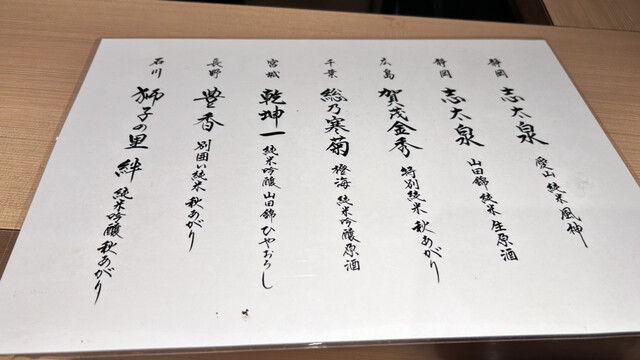 静岡 志太泉 愛山 純米 風神
静岡 志太泉 山田錦 純米 生原酒
広島 賀茂金秀 特別純米 秋あがり
千葉 総乃寒菊 橙海 純米吟醸原酒
宮城 乾坤一 純米吟醸 山田錦 ひやおろし
長野 豊香 別囲い純米 秋あがり
石川 獅子の里 絆 純米吟醸 秋あがり